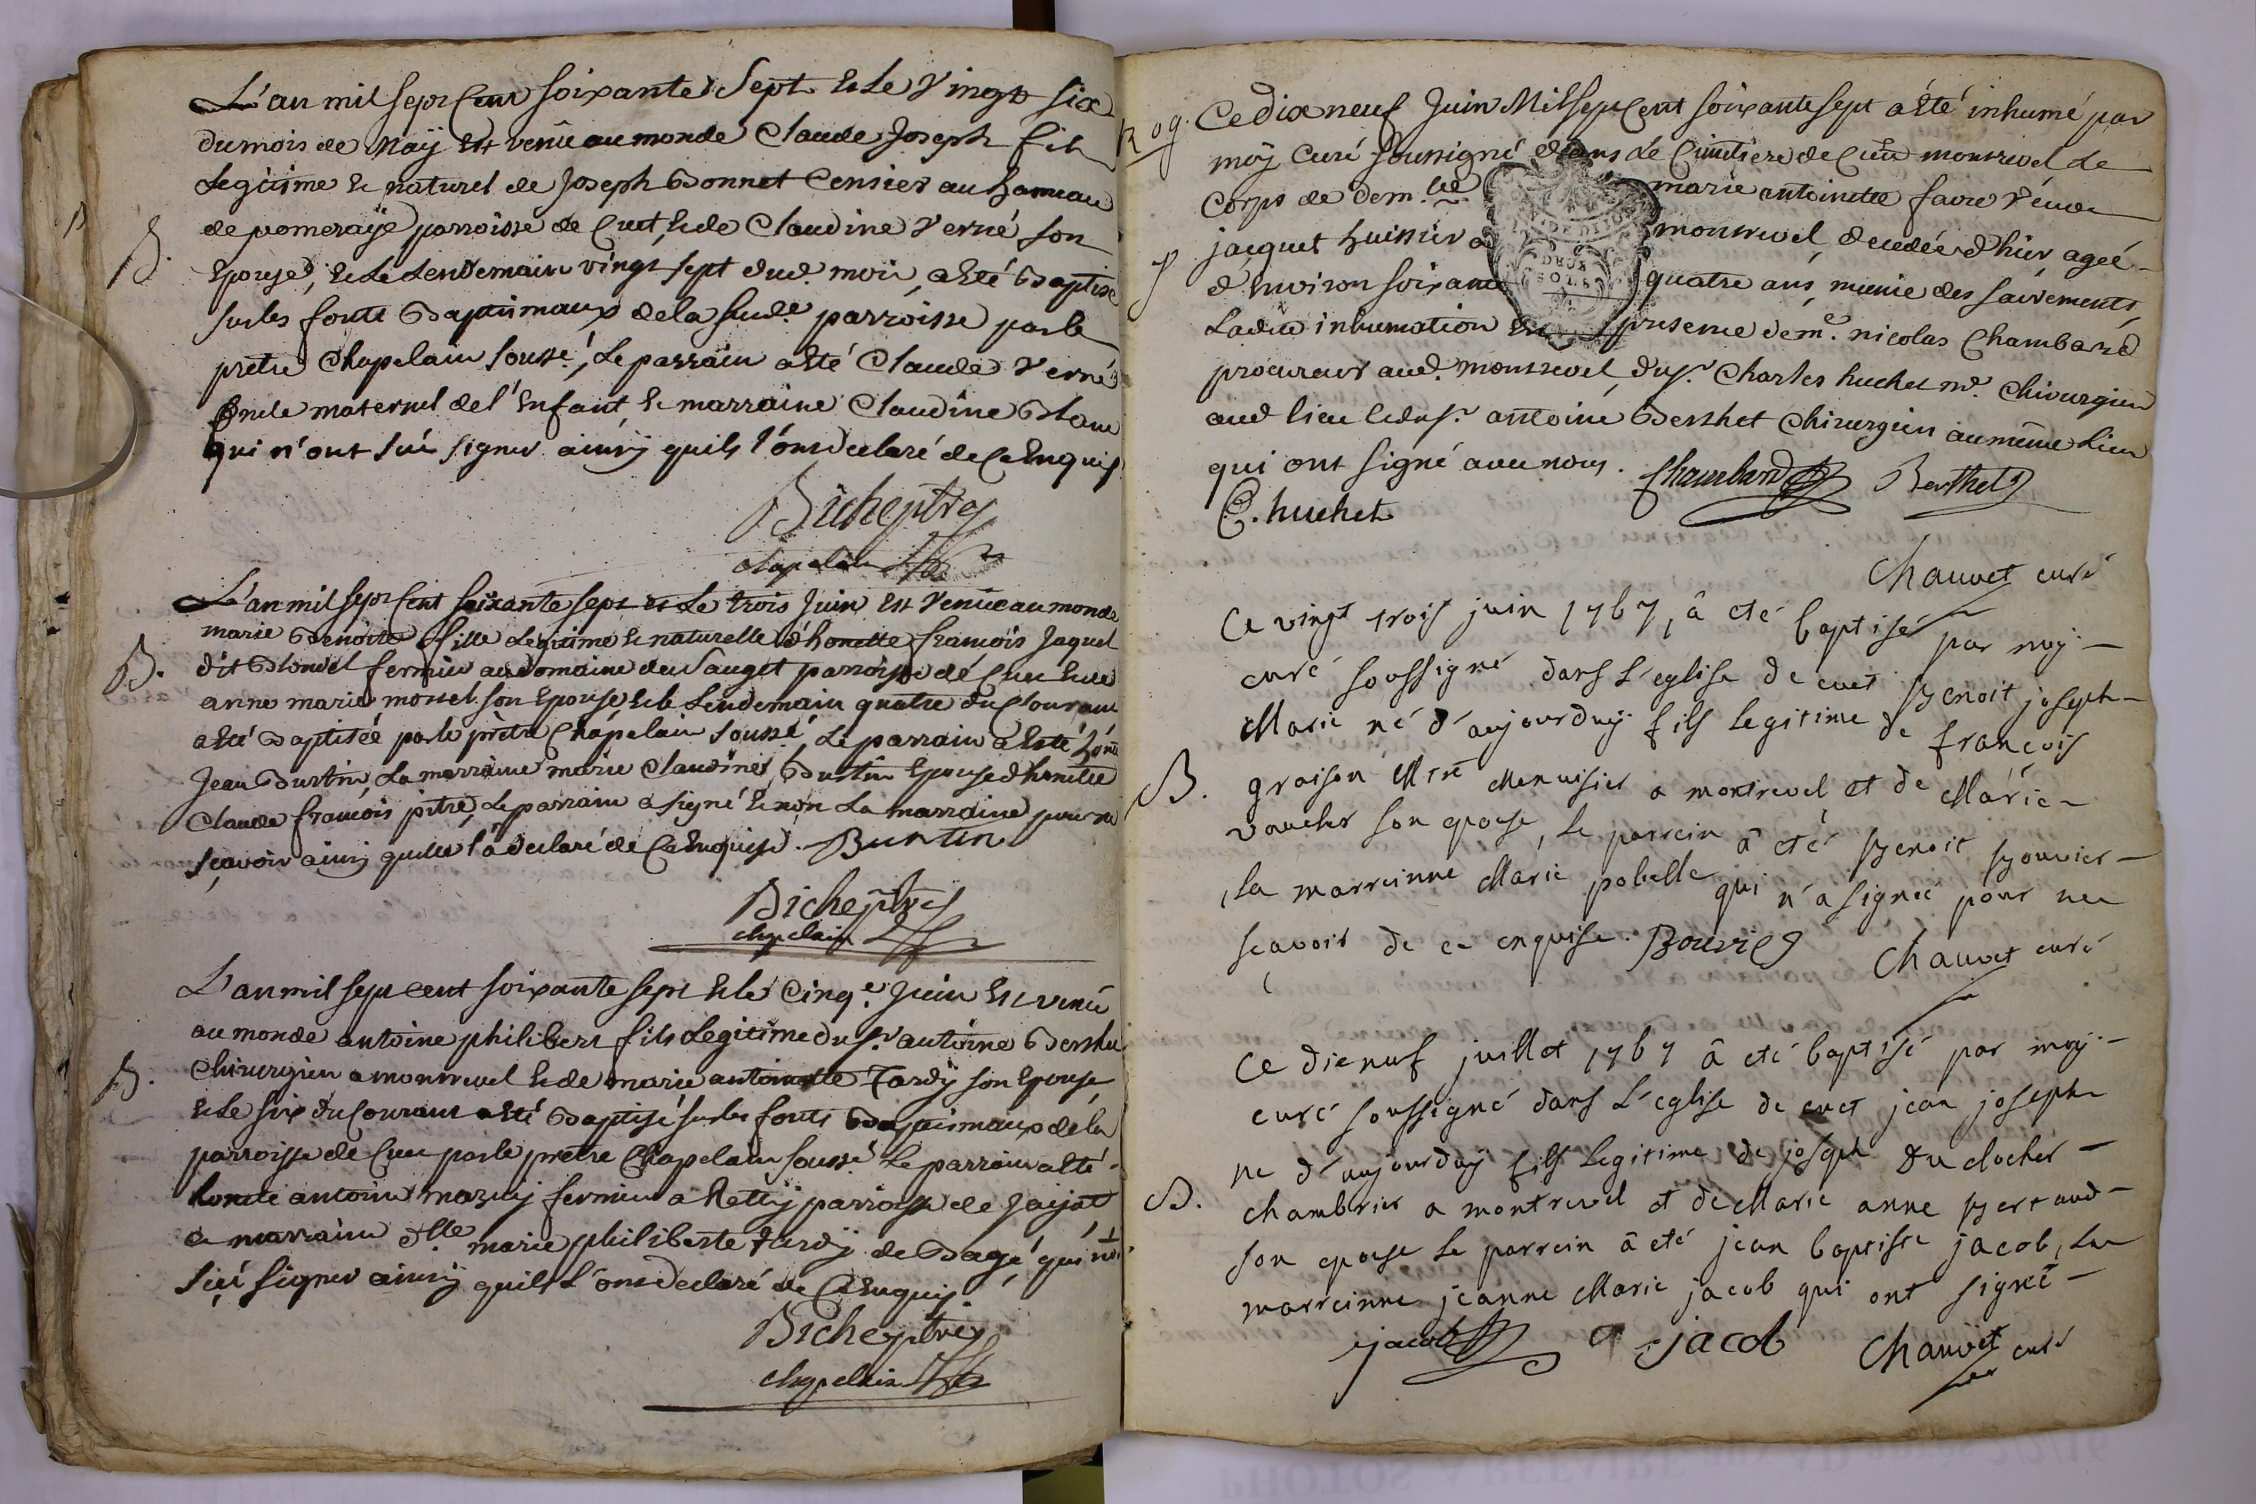 L'an mil sept Cent soixante Sept & Le Vingt six
du mois de May est venûe au monde Claude Joseph fils
Legitime & naturel de Joseph Bonnet Censier au hameau
de pomeraÿe parroisse de Cuet, & de Claudine Verné son
Epouse, & Le Lendemain vingt sept dud. mois, a Eté Baptisé
sur les fonts Baptismaux de la sud.e parroisse par le
prêtre Chapelain souss.é, Le parrain a Eté Claude Verné
oncle maternel de l'Enfant & marraine Claudine
qui n'ont sçû signer ainsÿ quils l'ont declaré de Ce Enquis
B. Biche ptre
chapelain
L'an mil sept Cent soixante sept et Le trois Juin Est Venüe au monde
marie Benoite fille Legitime & naturelle d'honette francois Jaquet
B. dit Blondel fermier au Domaine du Sauget parroisse de Cuet & de
anne marie morel son Epouse & le Lendemain quatre du Courant
a Eté Baptisée par le prêtre Chapelain soussé, Le parrain a Eté
Jean Burtin, La marraine marie Claudine Burtin Epouse d'honette
Claude francois pitre, Le parrain a signé & non La marraine pour ne
sçavoir ainsÿ quelle l'a declaré de Ce Enquise. Burtin
Biche ptre
chapelain
L'an mil sept cent soixante sept & le Cinq.e Juin Est venû
au monde antoine philibert fils Legitime du Sr. antoine Berthet
B. Chirurgien a montrevel & de marie antoinette Tardÿ son Epouse
& Le six du Courant a Eté Baptisé sur les fonts Baptismaux de la
parroisse de Cuet par le prêtre Chapelain soussé. Le parrain a Eté
honete antoine mazuÿ fermier a parroisse de Jaÿat
& marraine dlle marie philiberte tardÿ de Bagé, qui n'ont
sçû signer ainsÿ quils L'ont declaré de Ce Enquis.
Biche ptre
chapelain
Rog. Ce dix neuf Juin Mil sept Cent soixante sept a Eté inhumé par
moÿ Curé soussigné dans le Cimitiere de Cuet montrevel Le
Corps de dem.lle marie antoinette favre veuve
S jacquet huissier a montrevel, decedée d'hier agée
d'Environ soixante quatre ans, munie des sacrements,
Ladite inhumation en presence de me. nicolas Chambard
procureur aud. montrevel du Sr. Charles huchet md. Chirurgien
aud lieu & du Sr. antoine Berthet Chirurgien au même Lieu
qui ont signé avec nous. Chambard Berthet
C. huchet
Chauvet curé
Ce vingt trois juin 1767, â eté baptisé par moy
curé soussigné dans L'eglise de cuet Benoit joseph
Marie né d'aujourduy fils legitime de françois
B. graison Mtre Menuisier a montrevel et de Marie
vaucher son epouse, le parrein â eté Benoit Bouvier
, la marreinne Marie pobelle qui n'a signée pour ne
sçavoir de ce enquise. Bouvier
Chauvet curé
Ce dieneuf juillet 1767 â eté baptisé par moy
curé soussigné dans L'eglise de cuet jean joseph
ne d'aujourduy fils legitime de joseph Du clocher
B. chambrier a montrevel et de Marie anne Bertaud
son epouse le parrein â eté jean baptiste jacob, La
marreinne jeanne Marie jacob qui ont signé
jacob jacob Chauvet curé